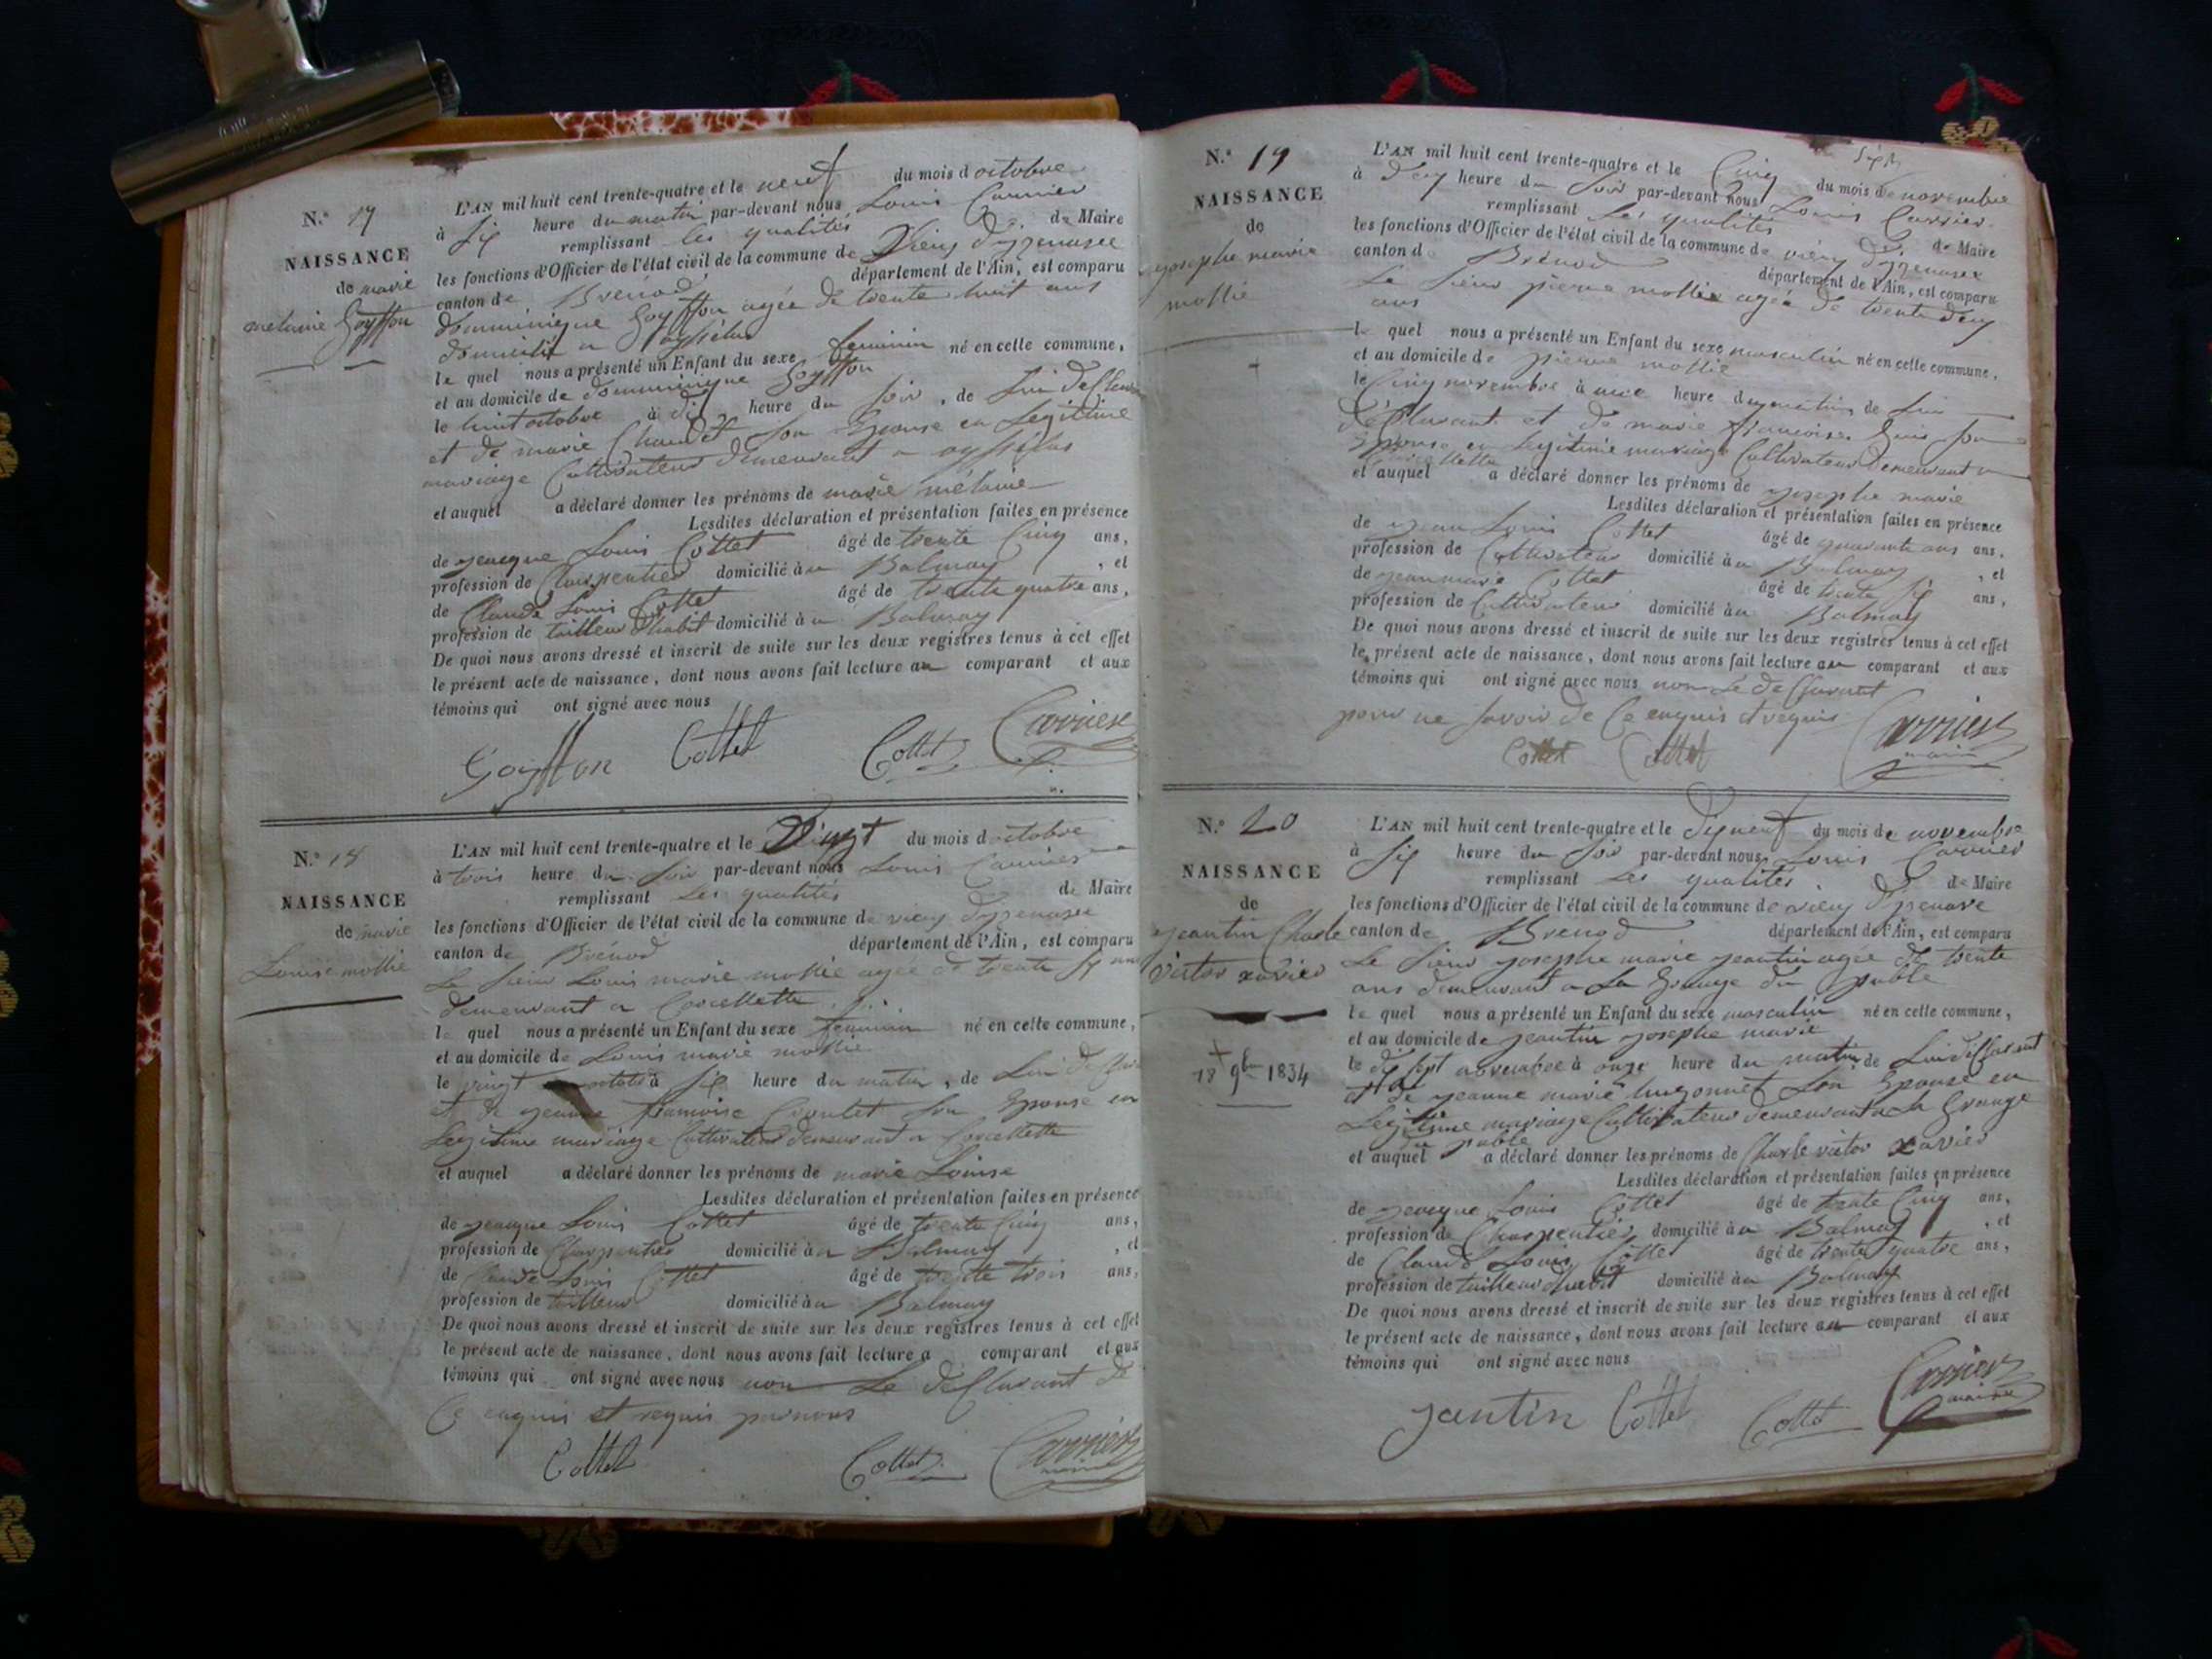 N.° 17
NAISSANCE
de marie
melanie Goyffon
L'AN mil huit cent trente-quatre et le neuf du mois d octobre
à Six heure du matin par-devant nous Louis Carrier
remplissant les qualités de Maire
les fonctions d'Officier de l'état civil de la commune de Vieux d'izenave
canton de Brénod département de l'Ain, est comparu
domminique Goyffon agée de trente huit ans
domicilié a oysselas
le quel nous a présenté un Enfant du sexe feminin né en cette commune,
et au domicile de domminique Goyffon
le huit octobre à dix heure du soir, de lui
et de marie Chaudet son Epouse en Legitime
mariage Cultivateur demeurant a oysselas
et auquel a déclaré donner les prénoms de marie mélanie
Lesdites déclaration et présentation faites en présence
de jeacque Louis Cottet âgé de trente Cinq ans,
profession de Charpentier domicilié à a Balmay, et
de Claude Louis Cottet âgé de trente quatre ans,
profession de tailleur d'habit domicilié à a Balmay
De quoi nous avons dressé et inscrit de suite sur les deux registres tenus à cet effet
le présent acte de naissance, dont nous avons fait lecture au comparant et aux
témoins qui ont signé avec nous
Goyffon Cottet Cottet Carrier
N.° 18
NAISSANCE
de marie
Louise mollie
L'AN mil huit cent trente-quatre et le Vingt du mois d octobre
à trois heure du Soir par-devant nous Louis Carrier
remplissant Les qualités de Maire
les fonctions d'Officier de l'état civil de la commune de vieux d'izenave
canton de Brénod département de l'Ain, est comparu
Le Sieur Louis marie mollie agée de trente six ans
demeurant a Corcellette
le quel nous a présenté un Enfant du sexe feminin né en cette commune,
et au domicile de Louis marie mollie
le vingt octobre à Six heure du matin, de Lui
et de jeanne francoise Son Epouse en
Legitime mariage Cultivateur demeurant a Corcellette
et auquel a déclaré donner les prénoms de marie Louise
Lesdites déclaration et présentation faites en présence
de jeacque Louis Cottet âgé de trente Cinq ans,
profession de Charpentier domicilié à a Balmay, et
de Claude Louis Cottet âgé de trente trois ans,
profession de tailleur domicilié à a Balmay
De quoi nous avons dressé et inscrit de suite sur les deux registres tenus à cet effet
le présent acte de naissance, dont nous avons fait lecture a comparant et aux
témoins qui ont signé avec nous non Le decllarant de
Ce enquis et requis par nous
Cottet Cottet Carrier
maire
N.° 19
NAISSANCE
de
josephe marie
mollie
L'AN mil huit cent trente-quatre et le Cinq du mois de novembre
à dix heure du Soir par-devant nous Louis Carrier
remplissant Les qualités de Maire
les fonctions d'Officier de l'état civil de la commune de vieux d'izenave
canton d Brénod département de l'Ain, est comparu
Le Sieur pierre mollie agée de trente deux
ans
le quel nous a présenté un Enfant du sexe masculin né en cette commune,
et au domicile de pierre mollie
le Cinq novembre à une heure du matin de Lui
décllarant et de marie francoise Son
Epouse en Legitime mariage Cultivateur demeurant a
Corcellette
et auquel a déclaré donner les prénoms de josephe marie
Lesdites déclaration et présentation faites en présence
de jean Louis Cottet âgé de quarante ans ans,
profession de Cultivateur domicilié à a Balmay, et
de jean marie Cottet âgé de trente Six ans,
profession de Cultivateur domicilié à a Balmay
De quoi nous avons dressé et inscrit de suite sur les deux registres tenus à cet effet
le présent acte de naissance, dont nous avons fait lecture au comparant et aux
témoins qui ont signé avec nous non Le decllarant
pour ne savoir de Ce enquis et requis
Cottet Cottet Carrier
maire
N.° 20
NAISSANCE
de
jeantin Charle
victor xavier
18 9bre 1834
L'AN mil huit cent trente-quatre et le dixneuf du mois de novembre
à Six heure du Soir par-devant nous Louis Carrier
remplissant Les qualités de Maire
les fonctions d'Officier de l'état civil de la commune de vieux d'izenave
canton de Brenod département de l'Ain, est comparu
Le Sieur josephe marie jeantin agée de trente
ans demeurant a La Grange du
le quel nous a présenté un Enfant du sexe masculin né en cette commune,
et au domicile de jeantin josephe marie
le dix sept novembre à onze heure du matin de Lui decllarant
et de jeanne marie hugonnet Son Epouse en
Legitime mariage Cultivateur demeurant a La Grange
et auquel a déclaré donner les prénoms de Charle victor xavier
Lesdites déclaration et présentation faites en présence
de jeacque Louis Cottet âgé de trente Cinq ans,
profession de Charpentier domicilié à a Balmay, et
de Claude Louis Cottet âgé de trente quatre ans,
profession de tailleur d'habit domicilié à a Balmay
De quoi nous avons dressé et inscrit de suite sur les deux registres tenus à cet effet
le présent acte de naissance, dont nous avons fait lecture au comparant et aux
témoins qui ont signé avec nous
jantin Cottet Cottet Carrier
maire